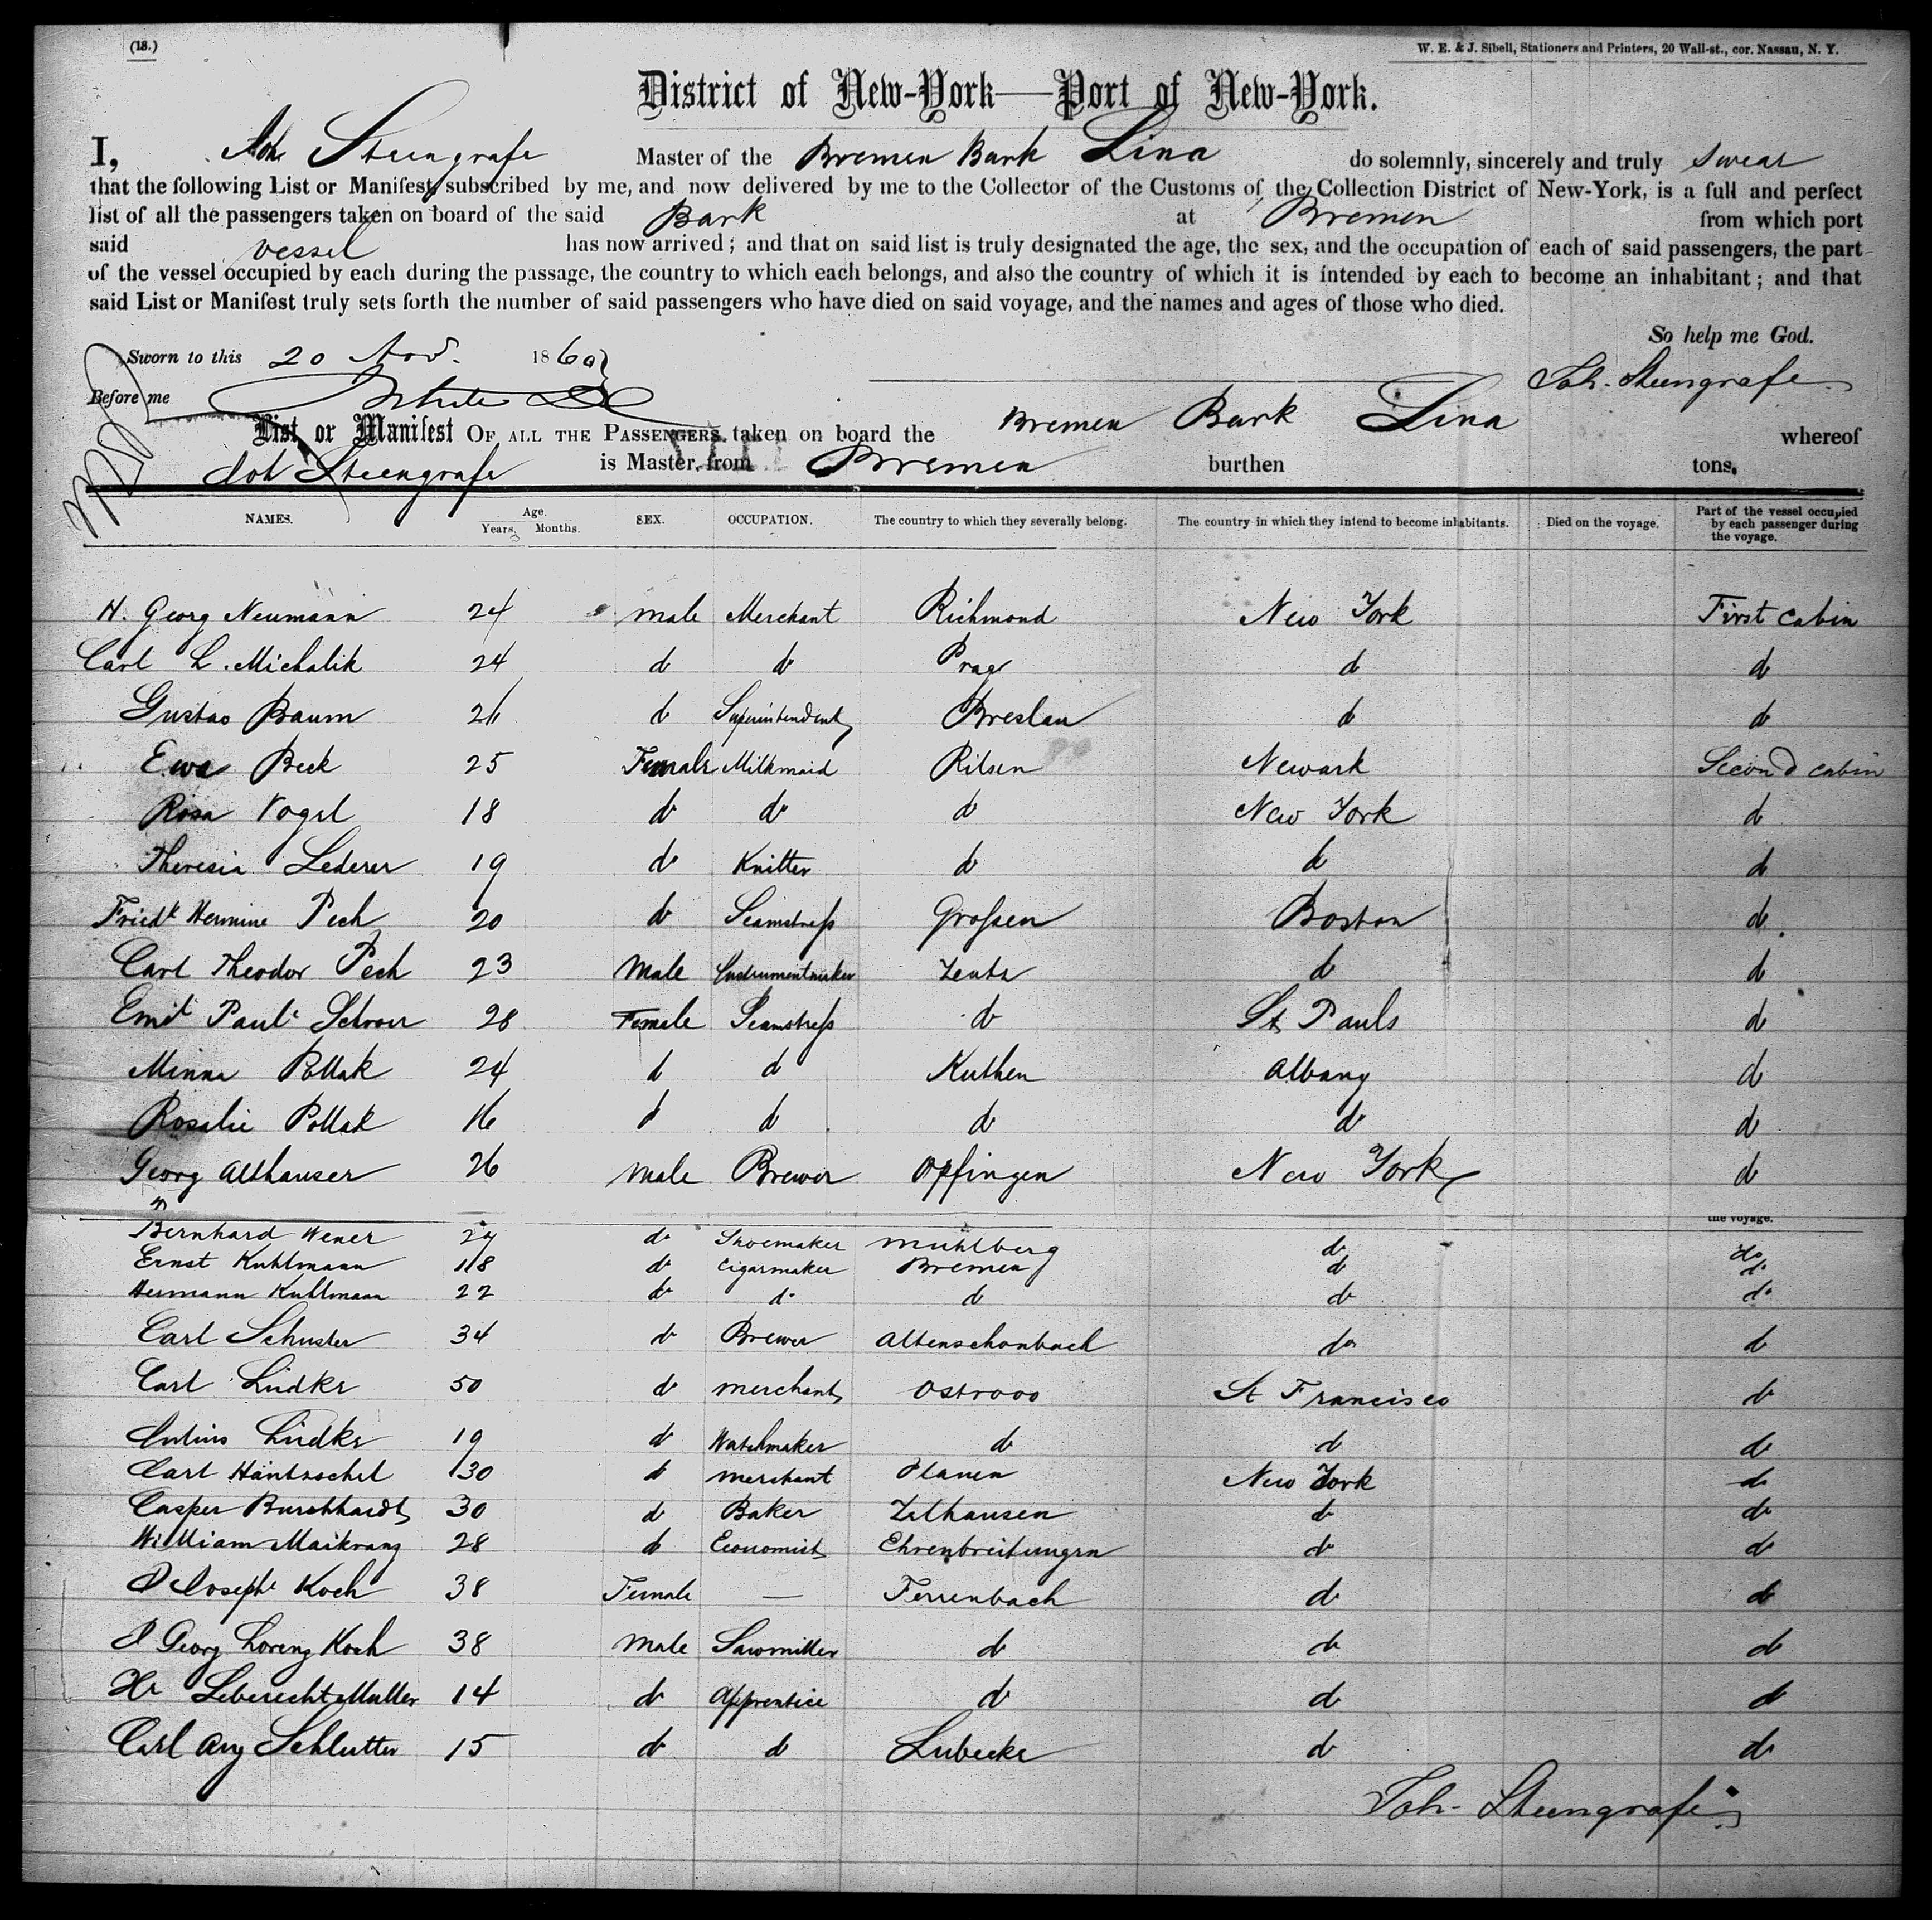 (18.)
W. E. & J. Sibell, Stationers and Printers, 20 Wall-st., cor. Nassau, N. Y.
District of New-York—Port of New-York.
I, Joh Steengrafe Master of the Bremen Bark Lina do solemnly, sincerely and truly swear
that the following List or Manifest, subscribed by me, and now delivered by me to the Collector of the Customs of the Collection District of New-York, is a full and perfect
list of all the passengers taken on board of the said Bark at Bremen from which port
said vessel has now arrived; and that on said list is truly designated the age, the sex, and the occupation of each of said passengers, the part
of the vessel occupied by each during the passage, the country to which each belongs, and also the country of which it is intended by each to become an inhabitant; and that
said List or Manifest truly sets forth the number of said passengers who have died on said voyage, and the names and ages of those who died.
So help me God.
Sworn to this 20 Nov. 1860
Joh. Steengrafe
Before me
List or Manifest OF ALL THE PASSENGERS taken on board the Bremen Bark Lina whereof
Joh Steengrafe is Master, from Bremen burthen tons.
NAMES. Age. Years, Months. SEX. OCCUPATION. The country to which they severally belong. The country in which they intend to become inhabitants. Died on the voyage. Part of the vessel occupied by each passenger during the voyage.
H. Georg Neumann 24 male Merchant Richmond New York First cabin
Carl L. Michalik 24 do do Prag do do
Gustav Baum 26 do Superintendent Breslau do do
Ewa Beck 25 Female Milkmaid Pilsen Newark Second cabin
Rosa Vogel 18 do do do New York do
Theresia Lederer 19 do Knitter do do do
Friedk Hermine Pech 20 do Seamstress Grossen Boston do
Carl Theodor Pech 23 Male Instrumentmaker do do
Emil Paul 28 Female Seamstress do St Pauls do
Minna Pollak 24 do do Kuthen Albany do
Rosalie Pollak 16 do do do do do
Georg Althauser 26 Male Brewer Opfingen New York do
the voyage.
Bernhard Wener 24 do Shoemaker Muhlberg do do
Ernst Kuhlmann 18 do Cigarmaker Bremen do do
Hermann Kuhlmann 22 do do do do do
Carl Schuster 34 do Brewer Altenschonbach do do
Carl Lüdke 50 do merchant Ostrowo St Francisco do
Julius Lüdke 19 do Watchmaker do do do
Carl Häntzschel 30 do merchant Plauen New York do
Casper Burchhardt 30 do Baker Zelhausen do do
William Maikranz 28 do Economist Ehrenbreitungen do do
Joseph Koch 38 Female — Ferrenbach do do
Georg Lorenz Koch 38 Male Sawmiller do do do
Hr Leberecht Muller 14 do Apprentice do do do
Carl Aug Schlutter 15 do do Lubecke do do
Joh. Steengrafe